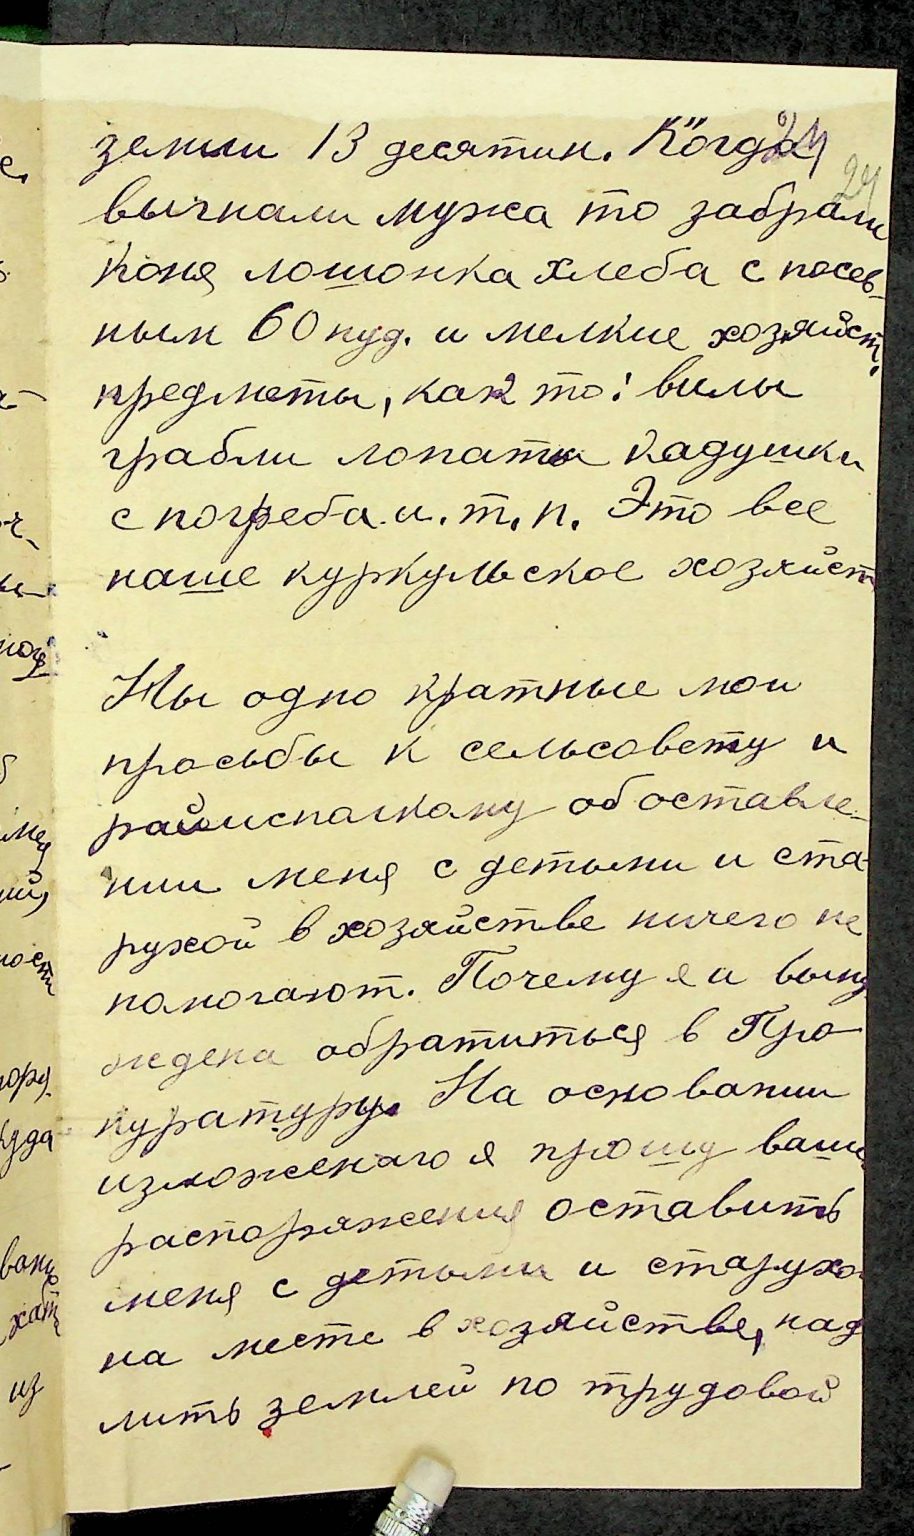 земли 13 десятин. Когда 24
24
выгнали мужа то забрали
коня лошонка хлеба с посев-
ным 60 пуд. и мелкие хозяйст.
предметы, как то: вилы
грабли лопаты кадушки
с погреба и. т. п. Это все
наше куркульское хозяйст
Мы одно кратные мои
просьбы к сельсовету и
райисполкому об оставле-
нии меня с детьми и ста-
рухой в хозяйстве ничего не
помогают. Почему я и выну
ждена обратиться в Про-
куратуру. На основании
изложенаго я прошу ваше
распоряжения оставить
меня с детьми и старухой
на месте в хозяйстве, над
лить землей по трудовой